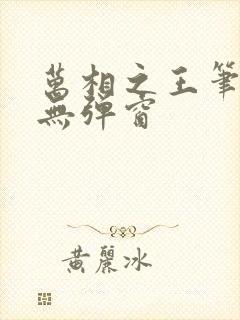 萬相之王筆
無彈窗
黃麗冰